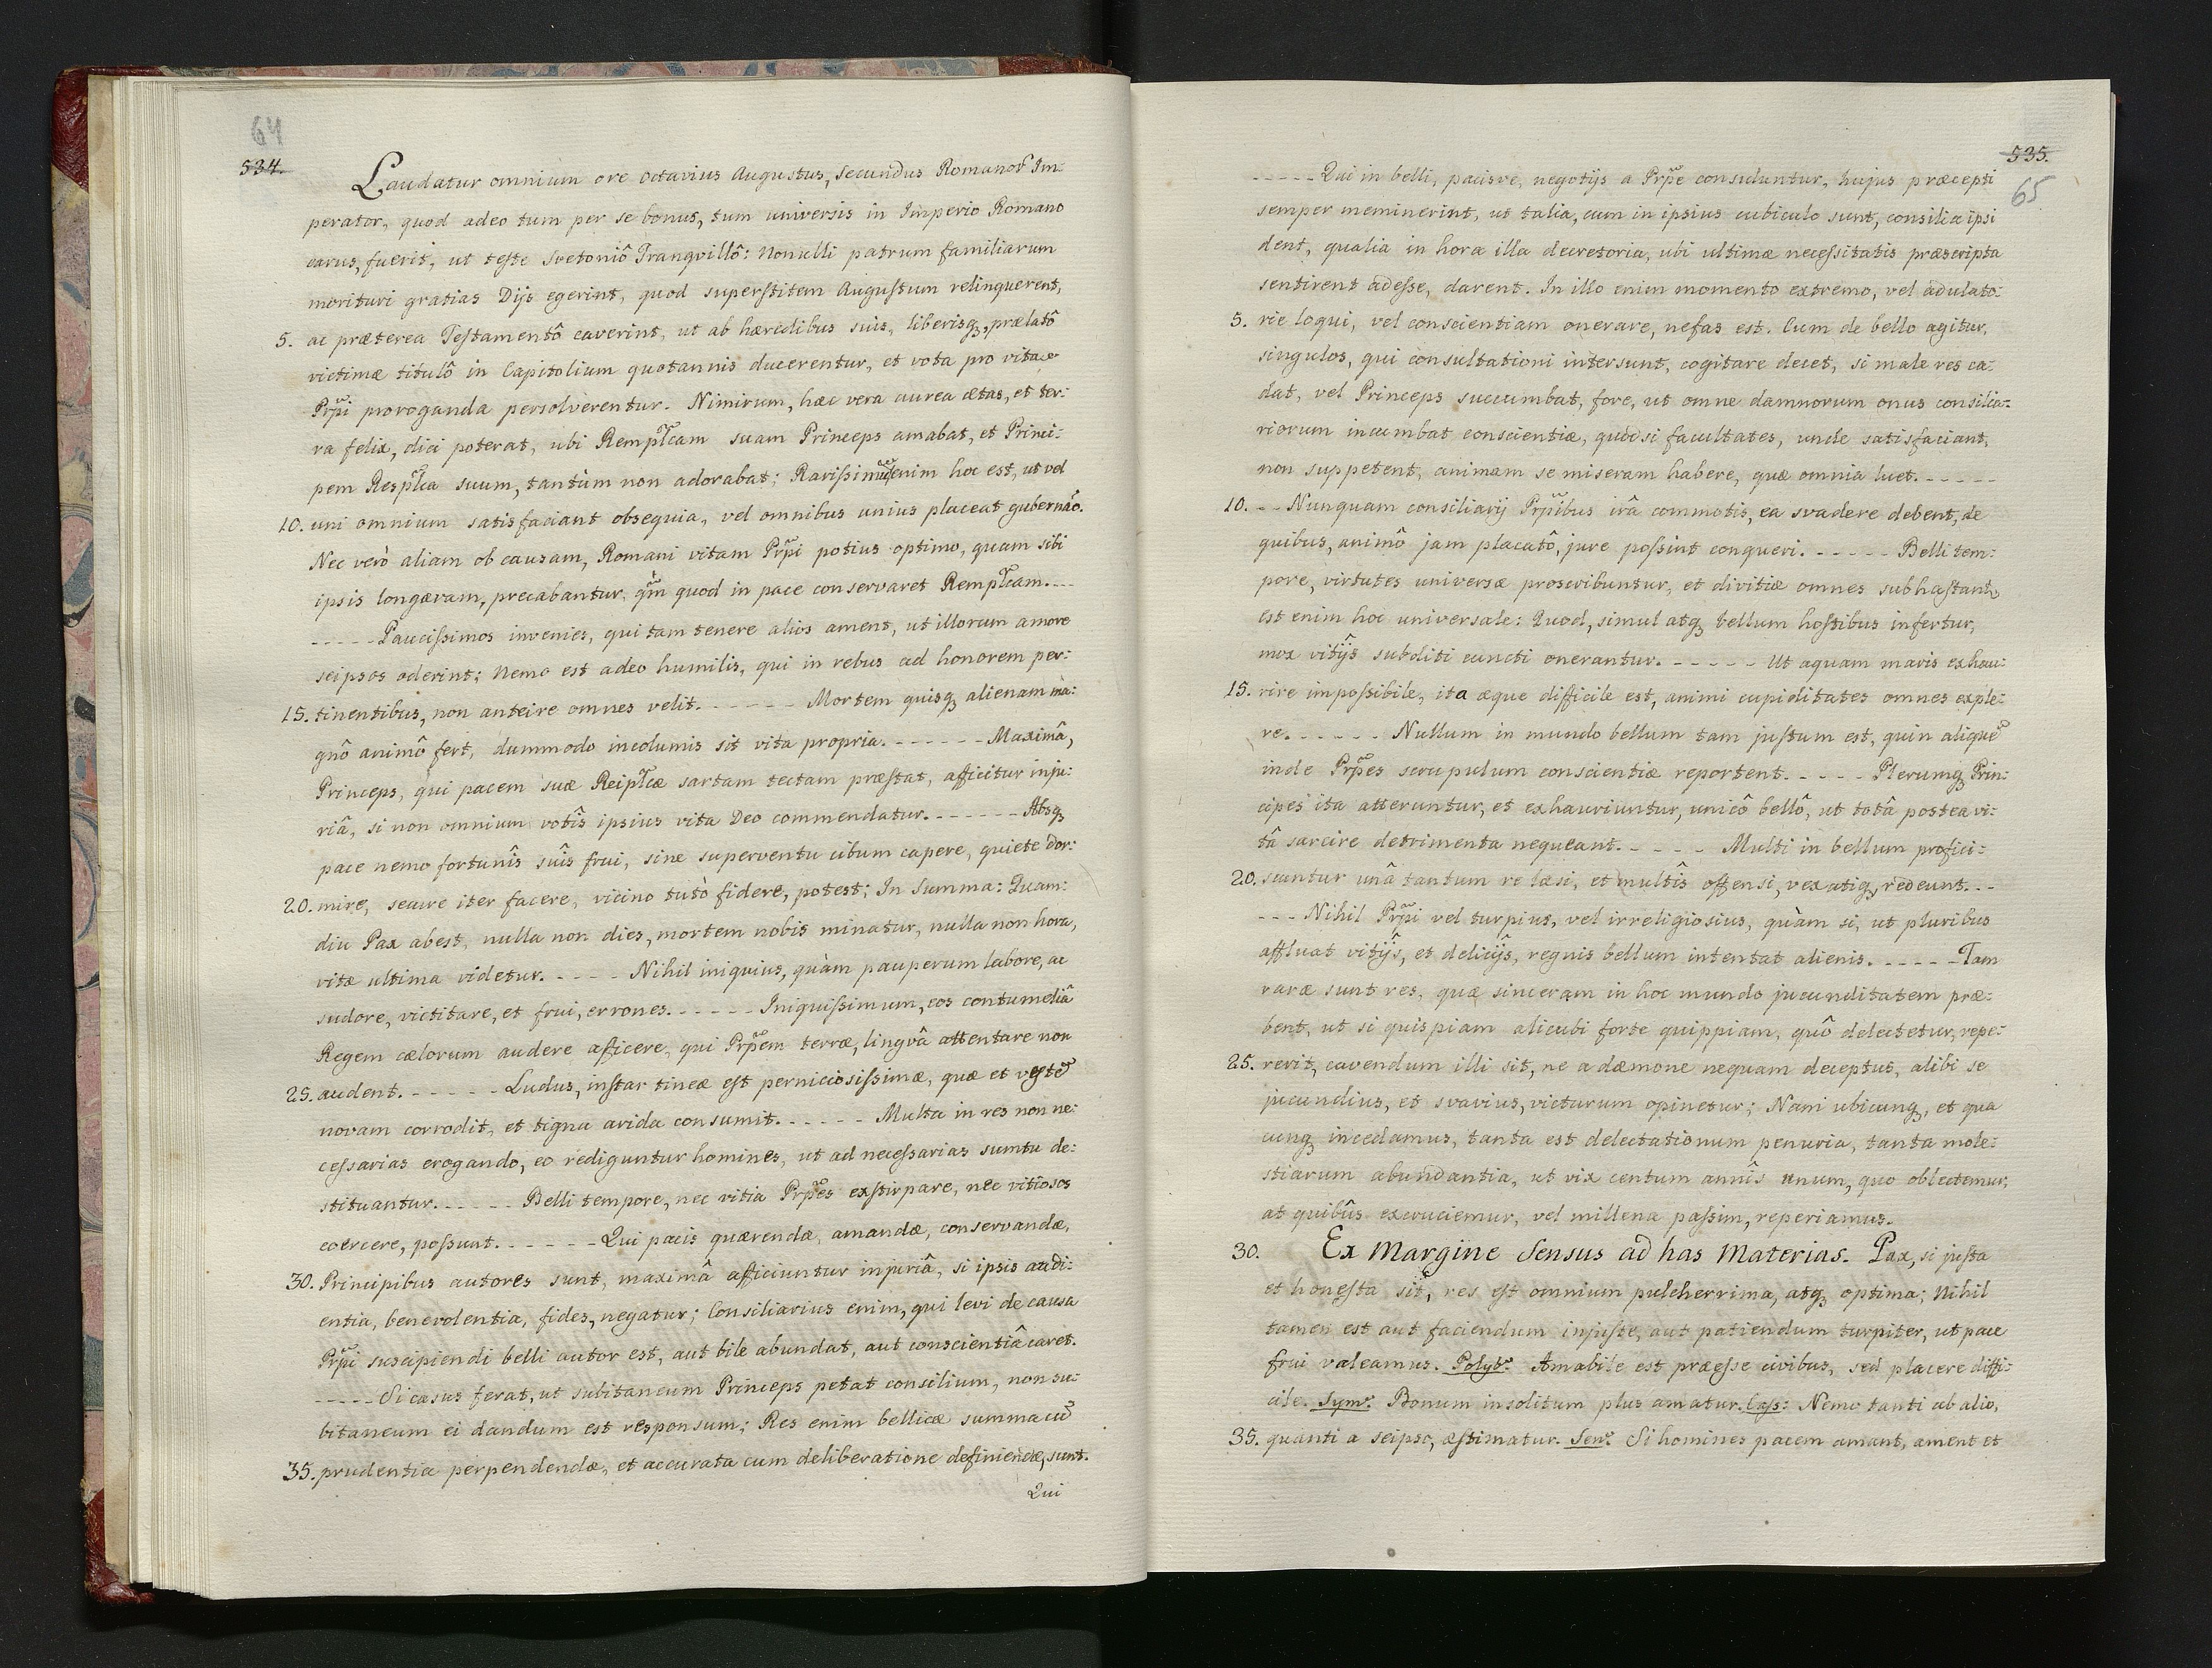 64
534.
Laudatur omnium ore Octavius Augustus, Secundus Romanor Im-
perator, quod adeo tum per se bonus, tum universis in Imperio Romano
carus, fuerit, ut teste Svetoniô Tranqvillô: Nonulli patrum familiarum
morituri gratias Dijs egerint, quod superstitem Augustum relinquerent,
5. ac præterea Testamentô caverint, ut ab hæredibus suis, liberisq, prælatô
victimæ titulô in Capitolium quotannis ducerentur, et vota pro vitae
Prpi proroganda persolverentur. Nimirum, hæc vera aurea ætas, et ter:
ra felix, dici poterat, ubi Remptcam suam Princeps amabat, et Princi:
pem Resptca suum, tantùm non adorabat; enim hoc est, ut vel
10. uni omnium satisfaciant obsequia, vel omnibus unius placeat gubernao.
Nec verò aliam ob causam, Romani vitam Prpi potius optimo, quam sibi
ipsis longævam, precabantur, qm quod in pace conservaret Remptcam. ---
----- Paucissimos invenies, qui tam tenere alios ament, ut illorum amore
seipsos oderint; Nemo est adeo humilis, qui in rebus ad honorem per:
15. tinentibus, non anteire omnes velit. ------ Mortem quisq alienam ma:
gnô animô fert, dummodo incolumis sit vita propria. ------ Maximâ,
Princeps, qui pacem suæ Reiptcæ sartam tectam præstat, afficitur inju:
riâ, si non omnium votîs ipsius vita Deo commendatur. ------ Absq
pace nemo fortunîs suîs frui, sine superventu cibum capere, quiete dor:
20. mire, secure iter facere, vicino tutò fidere, potest; In Summa: Quam:
diu Pax abest, nulla non dies, mortem nobis minatur, nulla non hora,
vitæ ultima videtur. ---- Nihil iniquius, quàm pauperum labore, ac
sudore, victitare, et frui, errones. ----- Iniquissimum, eos contumeliâ
Regem cælorum audere afficere, qui Prpem terræ, lingvâ attentare non
25. audent. ----- Ludus, instar tineæ est perniciosissimæ, quæ et veste
novam corrodit, et tigna arida consumit. ----- Multa in res non ne:
cessarias erogando, eo rediguntur homines, ut ad necessarias sumtu de:
stituantur. ----- Belli tempore, nec vitia Prpes exstirpare, nec vitiosos
coercere, possunt. ------ Qui pacis quærendæ, amandæ, conservandæ,
30. Principibus autores sunt, maximâ afficiuntur injuriâ, si ipsis audi:
entia, benevolentia, fides, negatur; Consiliarius enim, qui levi de causa
Prpi suscipiendi belli autor est, aut bile abundat, aut conscientiâ caret.
----- Si casus ferat, ut subitaneum Princeps petat consilium, non su:
bitaneum ei dandum est responsum; Res enim bellicæ summa cu
35. prudentia perpendendæ, et accurata cum deliberatione definiendæ, sunt.
Qui
535.
65
----- Qui in belli, pacisve, negotijs a Prpe consuluntur, hujus præcepti
semper meminerint, ut talia, cum in ipsius cubiculo sunt, consilia ipsi
dent, qualia in hora illa decretoria, ubi ultimæ necessitatis præscripta
sentirent adesse, darent. In illo enim momento extremo, vel adulato:
5. rie loqui, vel conscientiam onerare, nefas est. Cum de bello agitur,
singulos, qui consultationi intersunt, cogitare decet, si male res ca:
dat, vel Princeps succumbat, fore, ut omne damnorum onus consilia:
riorum incumbat conscientiæ, quòd si facultates, unde satisfaciant,
non suppetent, animam se miseram habere, quæ omnia luet. -----
10. -- Nunquam consiliarij Prpibus irâ commotis, ea svadere debent, de
quibus, animô jam placatô, jure possint conqueri. ----- Belli tem:
pore, virtutes universæ proscribuntur, et divitiæ omnes subhastant,
est enim hoc universale: Quod, simul atq bellum hostibus infertur,
mox vitijs subditi cuncti onerantur. ----- Ut aquam maris exhau:
15. rire impossibile, ita æque difficile est, animi cupiditates omnes exple:
re. ------ Nullum in mundo bellum tam justum est, quin alique
inde Prpes scrupulum conscientiæ reportent. ---- Plerumq Prin:
cipes ita atteruntur, et exhauriuntur, unicô bellô, ut totâ postea vi:
tâ sarcire detrimenta nequeant. ---- Multi in bellum profici:
20. scuntur unâ tantum re læsi, et multîs offensi, vexatiq, redeunt. --
--- Nihil Prpi vel turpius, vel irreligiosius, quàm si, ut pluribus
affluat vitijs, et delicijs, regnis bellum intentat alienis. ----- Tam
raræ sunt res, quæ sinceram in hoc mundo jucunditatem præ:
bent, ut si quispiam alicubi forte quippiam, quô delectetur, repe:
25. rerit, cavendum illi sit, ne a dæmone nequam deceptus, alibi se
jucundius, et svavius, victurum opinetur; Nam ubicunq, et qua
cunq incedamus, tanta est delectationum penuria, tanta mole:
stiarum abundantia, ut vix centum annîs unum, quo oblectemur,
at quibûs excruciemur, vel millena passim, reperiamus.
30. Ex Margine Sensus ad has Materias. Pax, si justa
et honesta sit, res est omnium pulcherrima, atq optima; Nihil
tamen est aut faciendum injuste, aut patiendum turpiter, ut pace
frui valeamus. Polyb: Amabile est præesse civibus, sed placere diffi:
cile. Sym: Bonum insolitum plus amatur. Cass: Nemo tanti ab alio,
35. quanti a seipso, æstimatur. Sen: Si homines pacem amant, ament et